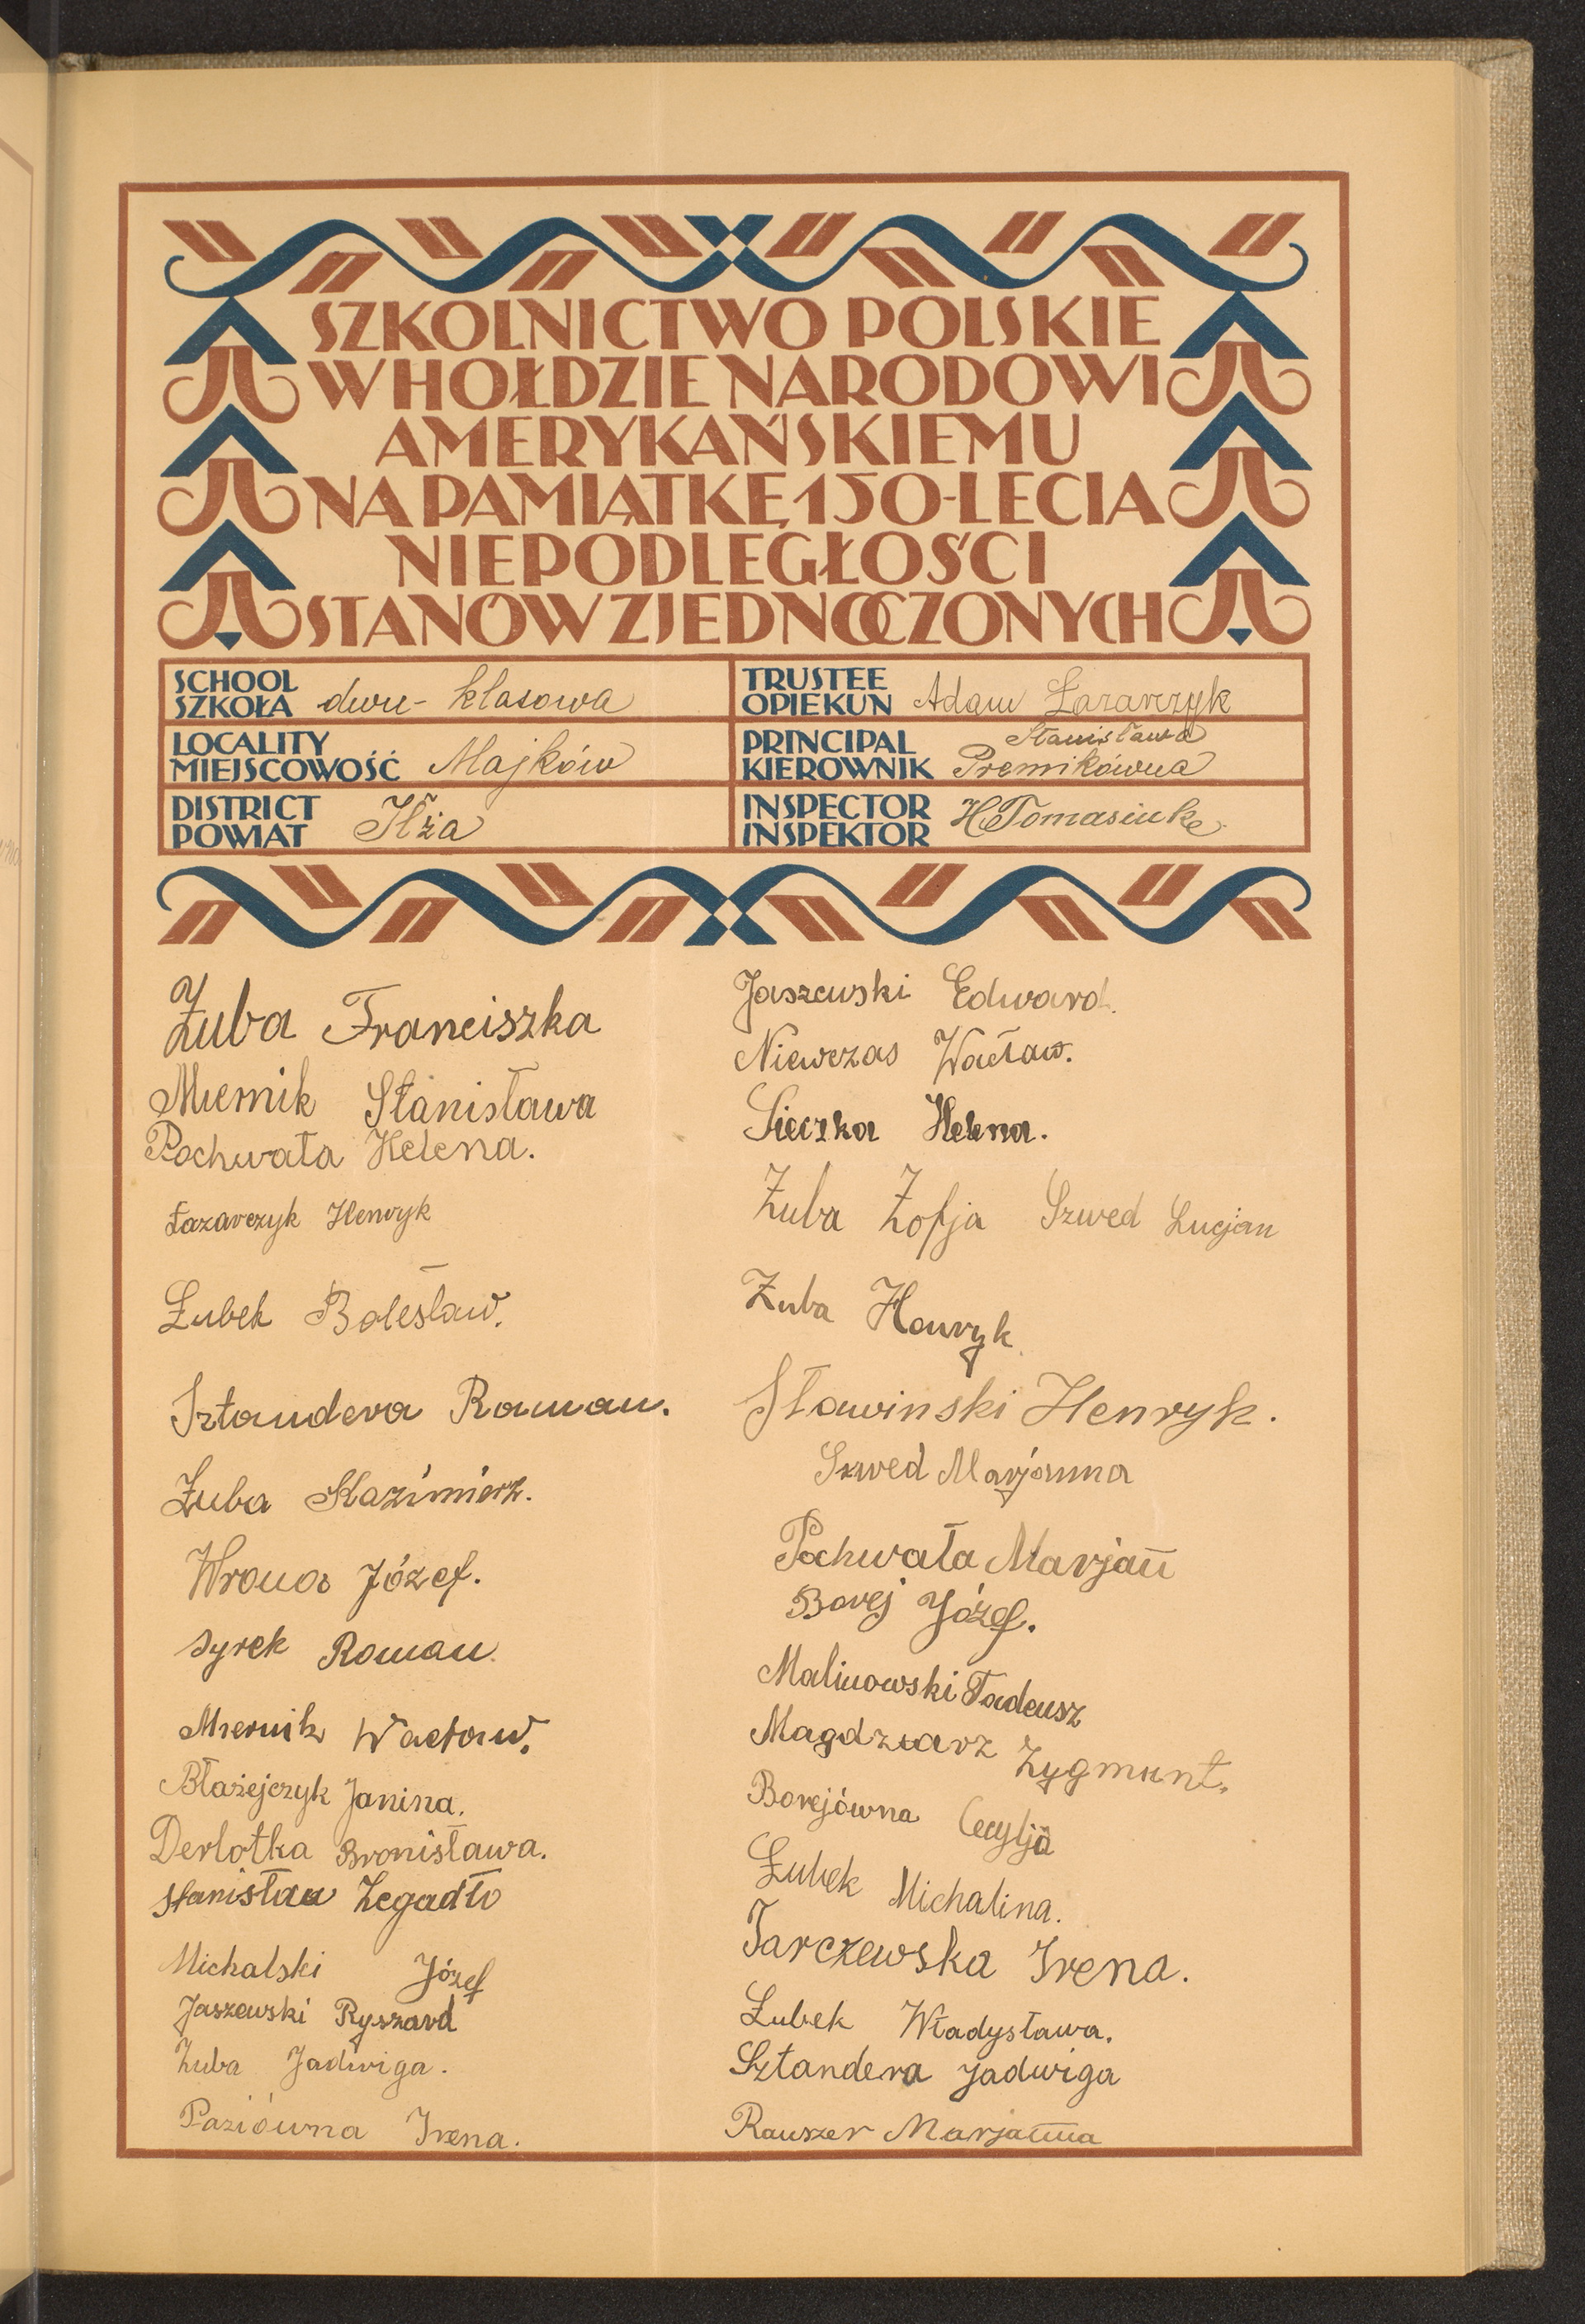 SZKOLNICTWO POLSKIE
W HOŁDZIE NARODOWI
AMERYKAŃSKIEMU
NA PAMIĄTKĘ 150-LECIA
NIEPODLEGŁOŚCI
STANÓW ZJEDNOCZONYCH
SCHOOL
SZKOŁA dwu-klasowa
TRUSTEE
OPIEKUN Adam Łazarczyk
LOCALITY
MIEJSCOWOŚĆ Majków
PRINCIPAL Stanisława
KIEROWNIK Premikówna
DISTRICT
POWIAT Iłża
INSPECTOR
INSPEKTOR H. Tomasiuk
Żuba Franciszka
Miernik Stanisława
Pochwała Helena.
Łazarczyk Henryk
Łubek Bolesław.
Sztandera Roman.
Żuba Kazimierz.
Wrona Józef.
Syrek Roman.
Miernik Wacław.
Błażejczyk Janina.
Derlatka Bronisława.
Stanisław Zegadło
Michalski Józef
Jaszewski Ryszard
Żuba Jadwiga.
Paziówna Irena.
Jaszewski Edward.
Niewczas Wacław.
Sieczka Helena.
Żuba Zofja Szwed Lucjan
Żuba Henryk
Sławinski Henryk.
Szwed Marjanna
Pochwała Marjan
Borej Józef.
Malinowski Tadeusz
Magdziarz Zygmunt.
Borejówna Cecylja
Łubek Michalina.
Tarczewska Irena.
Łubek Władysława.
Sztandera Jadwiga
Rauszer Marjanna